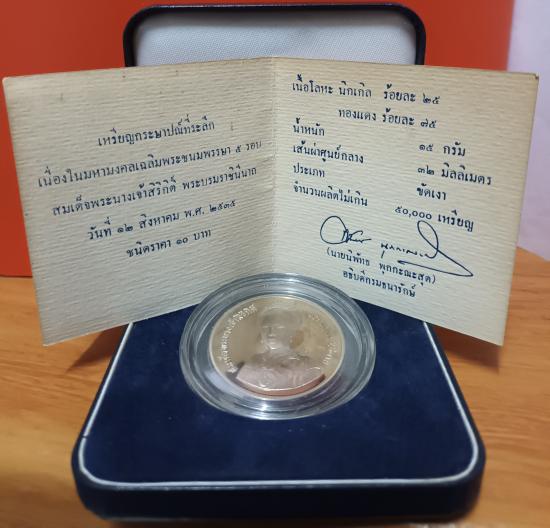 เหรียญกระษาปณ์ที่ระลึก
เนื่องในมหามงคลเฉลิมพระชนมพรรษา ๕ รอบ
สมเด็จพระนางเจ้าสิริกิติ์ พระบรมราชินีนาถ
วันที่ ๑๒ สิงหาคม พ.ศ. ๒๕๓๕
ชนิดราคา ๑๐ บาท
เนื้อโลหะ นิกเกิล ร้อยละ ๒๕
ทองแดง ร้อยละ ๗๕
น้ำหนัก ๑๕ กรัม
เส้นผ่าศูนย์กลาง ๓๒ มิลลิเมตร
ประเภท ขัดเงา
จำนวนผลิตไม่เกิน ๕๐,๐๐๐ เหรียญ
(นายนิพัทธ พุกกะณะสุต)
อธิบดีกรมธนารักษ์